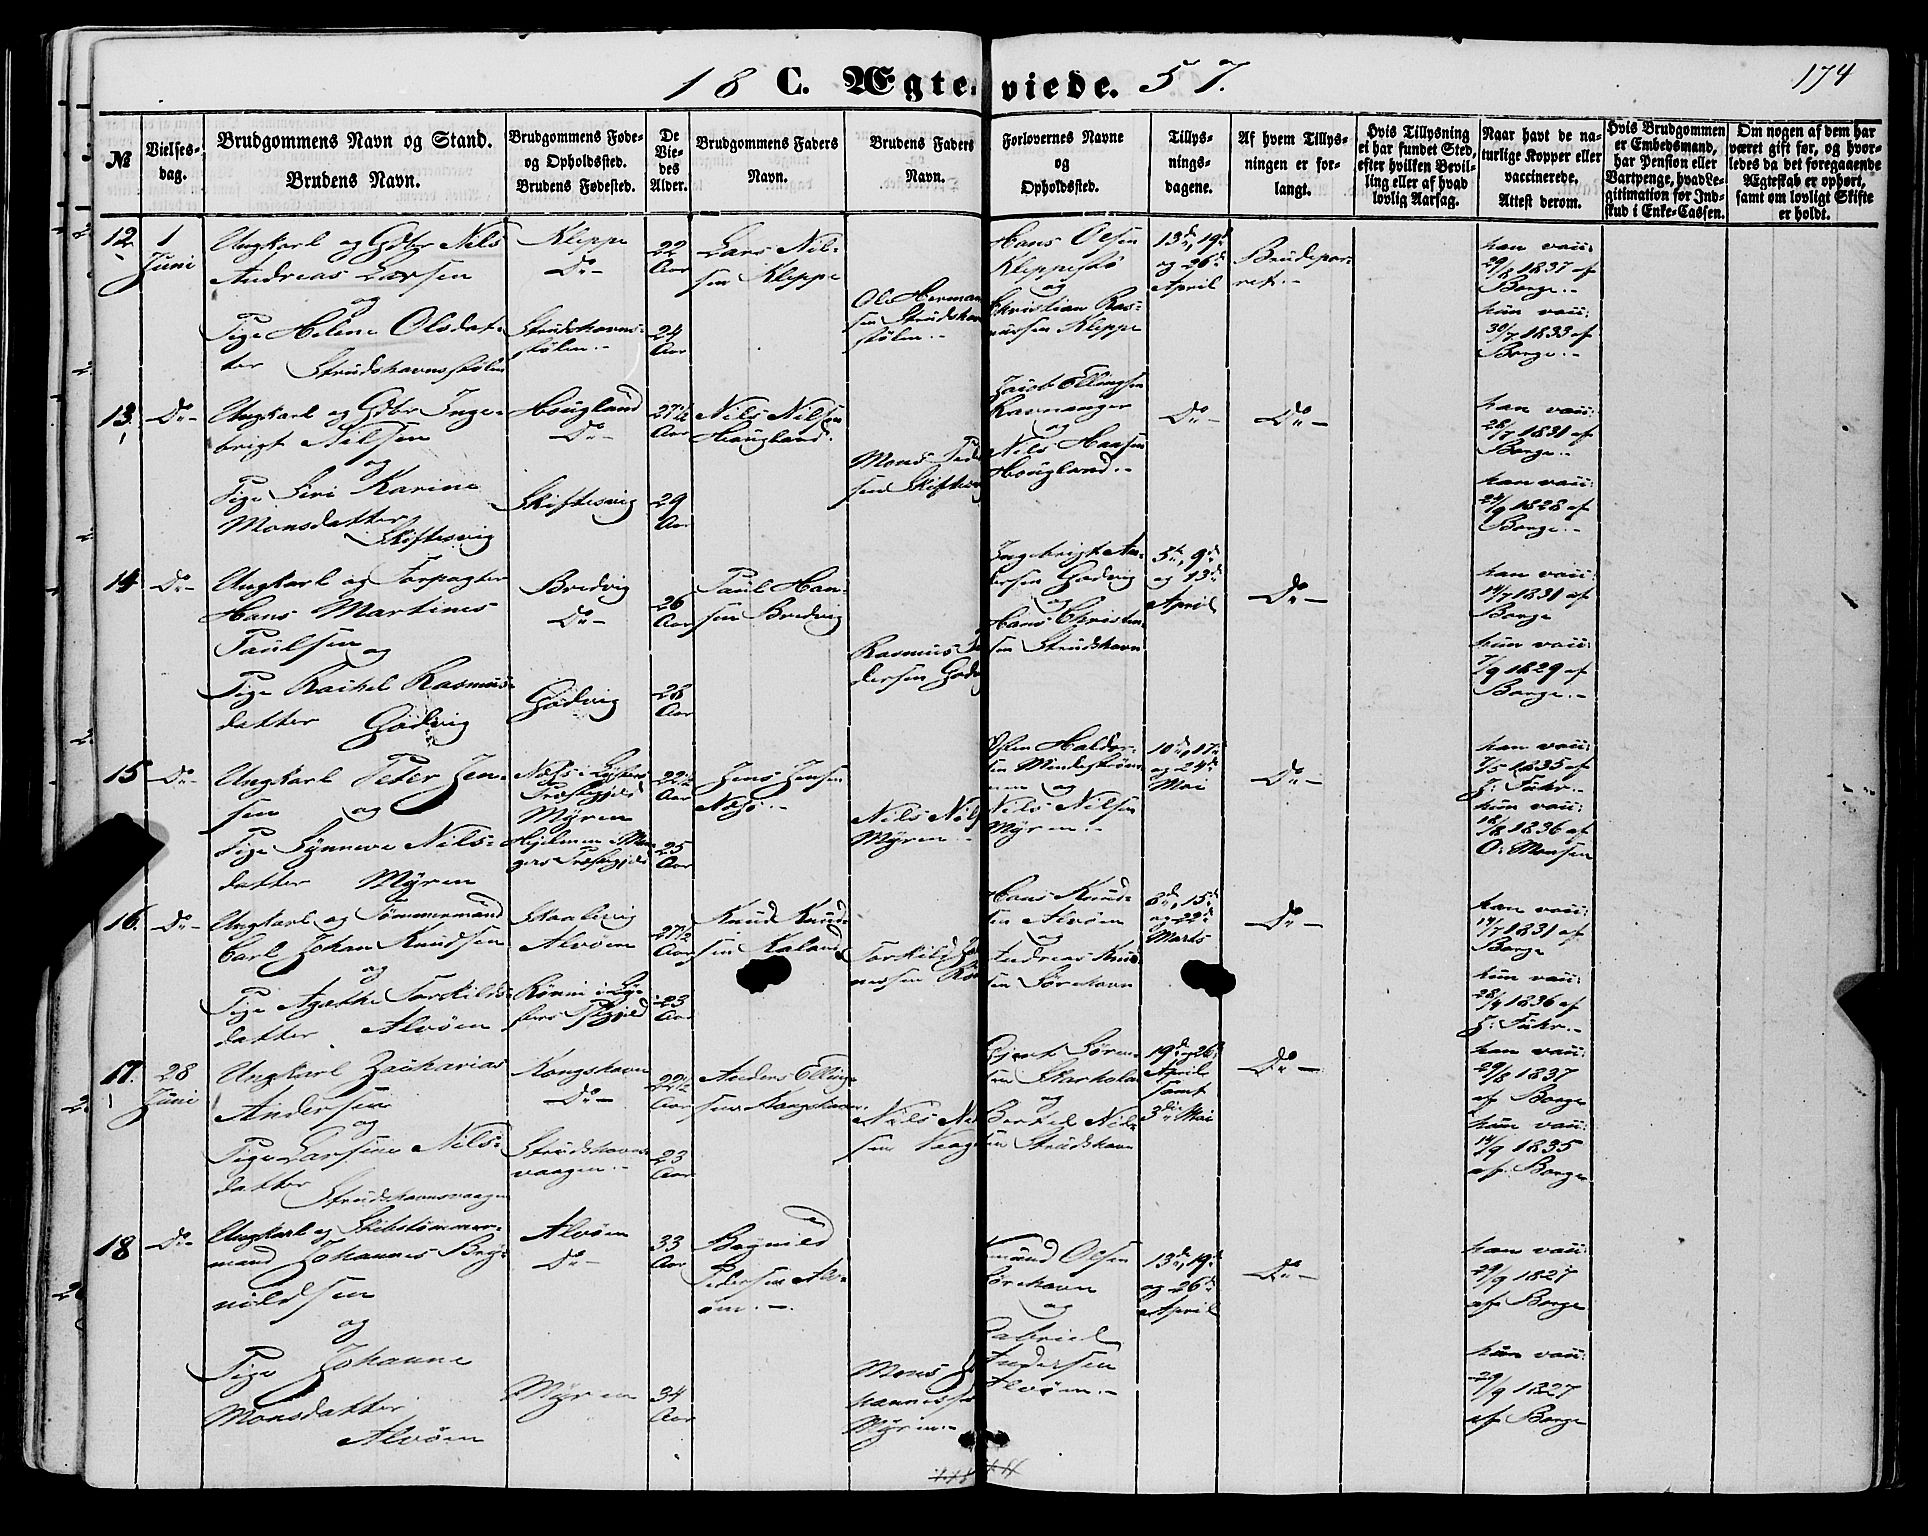 18 C. Ægteviede. 57.
174
No
Vielses-
dag.
Brudgommens Navn og Stand.
Brudens Navn.
Brudgommens Føde-
og Opholdssted.
Brudens Fødested.
De
Vie-
des
Alder.
Brudgommens Faders
Navn.
Brudens Faders
Navn.
Forlovernes Navne
og
Opholdssted.
Tillys-
nings-
dagene.
Af hvem Tillys-
ningen er for-
langt.
Hvis Tillysning
ei har fundet Sted,
efter hvilken Bevil-
ling eller af hvad
lovlig Aarsag.
Naar havt de na-
turlige Kopper eller
vaccinerede.
Attest derom.
Hvis Brudgommen
er Embedsmand,
har Pension eller
Vartpenge, hvad Le-
gitimation for Ind-
skud i Enke-Cassen.
Om nogen af dem har
været gift før, og hvor-
ledes da det foregaaende
Ægteskab er ophørt,
samt om lovligt Skifte
er holdt.
12
1
Juni
Ungkarl og Gbr Nils
Andreas Larsen
og
Pige Helene Olsdat-
ter Strudshavnsstølen
Kleppe
Do-
Strudshavns-
stølen.-
22
Aar
24
Aar
Lars Nil-
sen Kleppe
Ole Herman
sen Strudshavn
stølen.-
Hans Olsen
Kleppestø
og
Christian Ras-
mussen Kleppe
13de, 19de
og 26de
April
Brudepar-
ret.-
han vacc:
29/8 1837 af
Borge.-
hun vacc:
30/7 1833 af
Borge.-
13
Do-
Ungkarl og Gbr Inge-
brigt Nilsen
og
Pige Siri Karine
Monsdatter
Skiftesvig
Hougland
Do-
Skiftesvig
27 1/2
Aar
29
Aar
Nils Nilsen
Hougland.
Mons Pede
sen Skiftesv
Jacob Ellingsen
Ravnanger
og
Nils Hansen
Hougland.-
Do-
Do-
han vacc:
28/7 1831 af
Borge.-
hun vacc:
24/9 1828 af
Borge.-
14
Do-
Ungkarl og Forpagter
Hans Martines
Paulsen og
Pige Rachel Rasmus-
datter Godvig
Bredvig
Do-
Godvig
26
Aar
28
Aar
Paul Han-
sen Bredvig
Rasmus Pe
dersen Godv
Ingebrigt An-
dersen Godvig
og
Hans Christen
sen Strudshavn
5te, 9de
og 13de
April
Do-
han vacc:
14/7 1831 af
Borge
hun vacc:
7/9 1829 af
Borge.-
15
Do-
Ungkarl Peter Jen-
sen og
Pige Synneve Nils-
datter Myren
Næss i Lysters
Præstegjeld
Myren
Hjelmen i Man-
gers Præstegjeld
22 1/2
Aar
25
Aar
Jens Jensen
Næss.-
Nils Nils
Myren.-
Østen Haldor-
sen Mindestrøm-
men og
Nils Nilsen
Myren.-
10de, 17de
og 24de
Mai
Do-
han vacc:
7/5 1835 af
J: Fuhr.-
hun vacc:
18/8 1836 af
O: Monsen
16.
Do-
Ungkarl og Tømmermand
Carl Johan Knudsen
og
Pige Agathe Torkilds-
datter Alvøen
Skaalevig
Alvøen
27 1/2
Aar
23
Aar
Knud Knud-
sen Kaland
Torkild Jo
nessen Røn
Hans Knud-
sen Alvøen
og
Andreas Knud
sen Sørehavn
8de, 15de
og 22de
Marts
Do-
han vacc:
14/7 1831 af
Borge
hun vacc:
28/9 1836 af
J: Fuhr.-
17.
28
Juni
Ungkarl Zacharias
Andersen
og
Pige Larsine Nils-
datter
Strudshavnsvaagen
Kongshavn
Do-
Strudshavns-
vaagen.-
22 1/2
Aar
23
Aar
Anders Elling-
sen Kongshavn
Nils Nil
sen Vaagen
Gjert Søren-
sen Skarholm
og
Bertel Nil-
sen Strudshavn
19de og 26de
April
samt
3die Mai
Do-
han vacc:
29/8 1837
af Borge
hun vacc:
14/9 1835
af Borge
18
Do-
Ungkarl og Skibstømmer-
mand Johannes Bryn-
nildsen
og
Pige Johanne
Monsdatter
Alvøen
Alvøen
Do-
Myren
33
Aar
34
Aar
Brynild
Pedersen Alv-
øen.-
Mons Jo
hannessen
Myren.-
Amund Olsen
Sørehavn
og
Gabriel
Andersen
Alvøen.-
13de, 19de
og 26de
April
Do-
han vacc:
29/9 1827
af Borge
hun vacc:
29/9 1827
af Borge